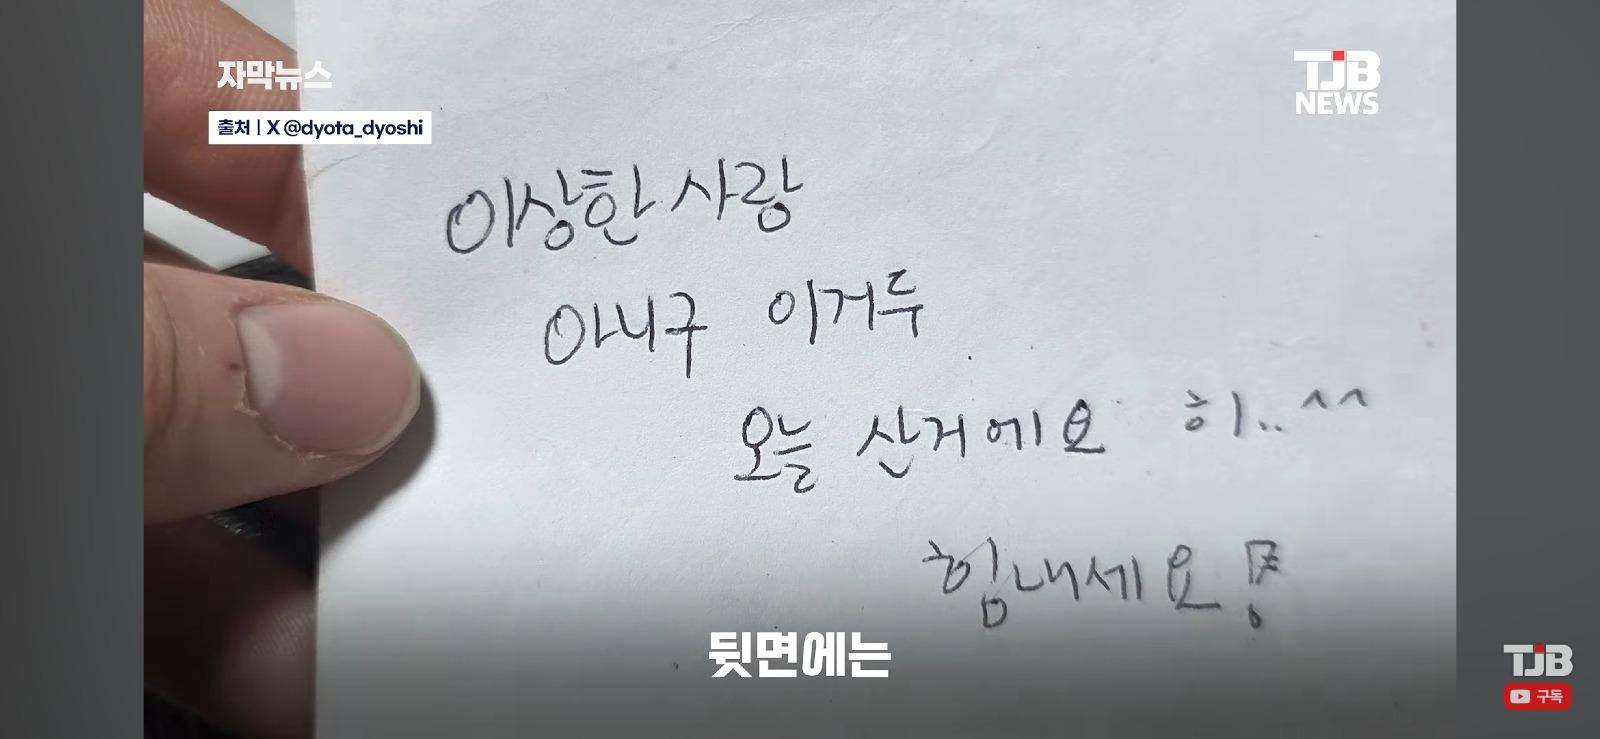 자막뉴스
TJB
NEWS
출처 | X @dyota_dyoshi
이상한 사랑
아니구 이거두
오늘 산거에요 히..^^
힘내세요!
뒷면에는
TJB
구독